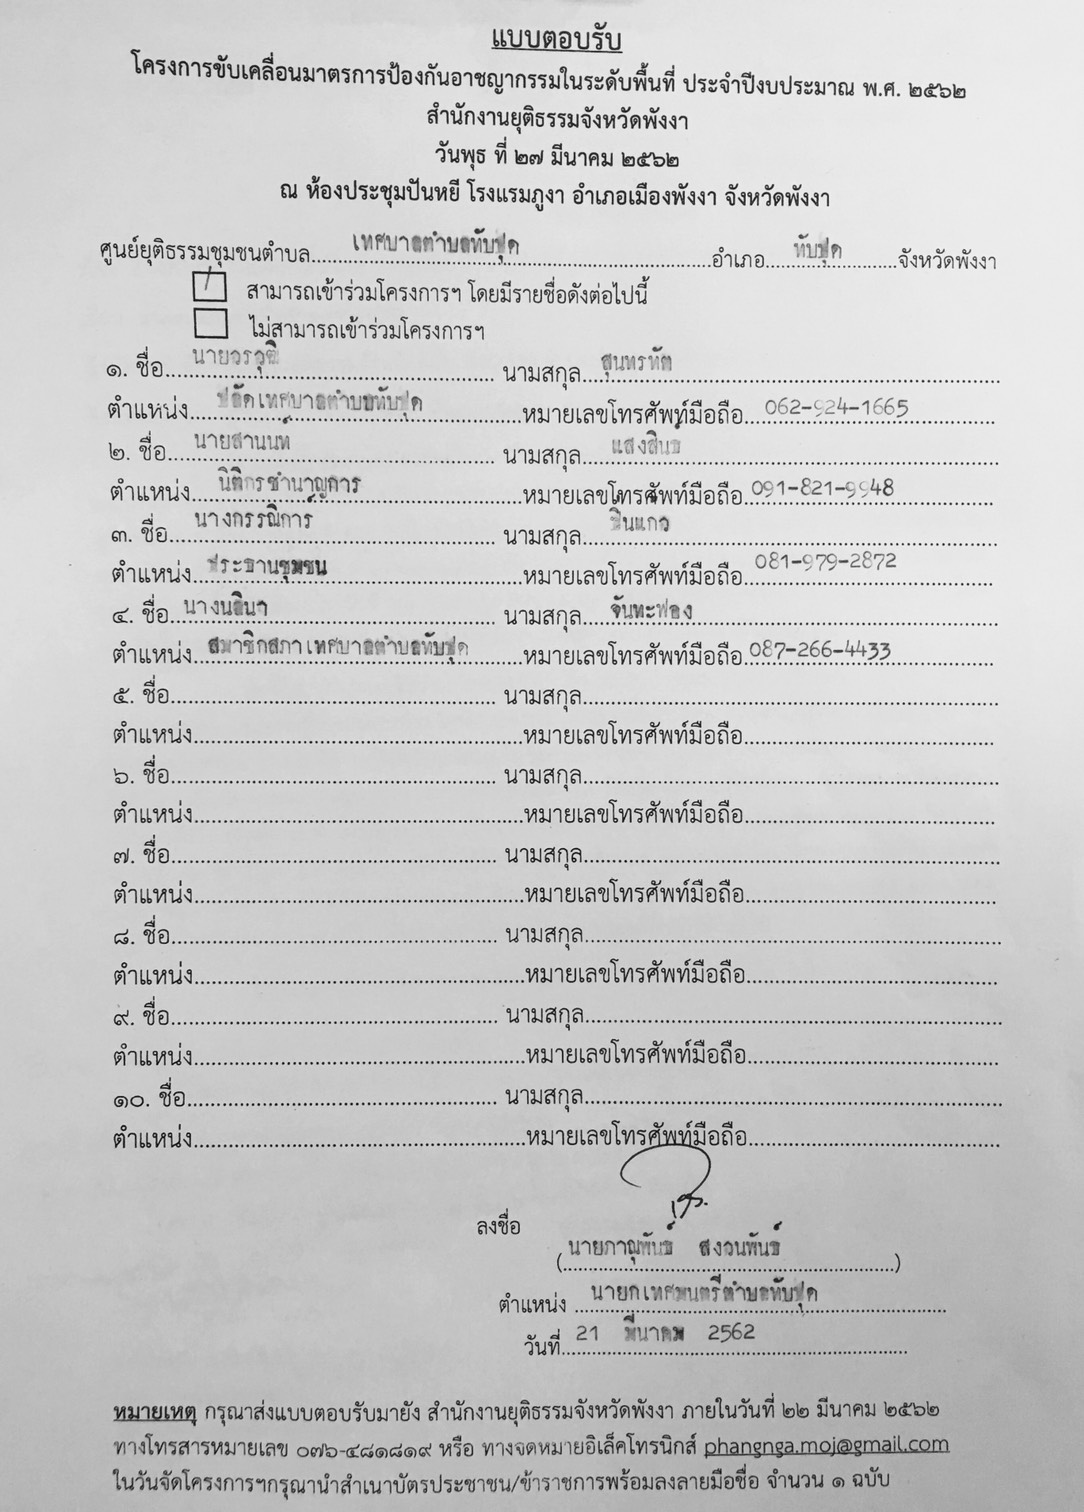 แบบตอบรับ
โครงการขับเคลื่อนมาตรการป้องกันอาชญากรรมในระดับพื้นที่ ประจำปีงบประมาณ พ.ศ. ๒๕๖๒
สำนักงานยุติธรรมจังหวัดพังงา
วันพุธ ที่ ๒๗ มีนาคม ๒๕๖๒
ณ ห้องประชุมปันหยี โรงแรมภูงา อำเภอเมืองพังงา จังหวัดพังงา
ศูนย์ยุติธรรมชุมชนตำบล เทศบาลตำบลทับปุด อำเภอ ทับปุด จังหวัดพังงา
สามารถเข้าร่วมโครงการฯ โดยมีรายชื่อดังต่อไปนี้
ไม่สามารถเข้าร่วมโครงการฯ
๑. ชื่อ นายวรวุฒิ นามสกุล สุนทรทัต
ตำแหน่ง ปลัดเทศบาลตำบลทับปุด หมายเลขโทรศัพท์มือถือ 062-924-1665
๒. ชื่อ นายสานนท์ นามสกุล แสงสินธ์
ตำแหน่ง นิติกรชำนาญการ หมายเลขโทรศัพท์มือถือ 091-821-9948
๓. ชื่อ นางกรรณิการ์ นามสกุล ชิ้นแก้ว
ตำแหน่ง ประธานชุมชน หมายเลขโทรศัพท์มือถือ 081-979-2872
๔. ชื่อ นางนลินา นามสกุล จันทะฟอง
ตำแหน่ง สมาชิกสภาเทศบาลตำบลทับปุด หมายเลขโทรศัพท์มือถือ 087-266-4433
๕. ชื่อ นามสกุล
ตำแหน่ง หมายเลขโทรศัพท์มือถือ
๖. ชื่อ นามสกุล
ตำแหน่ง หมายเลขโทรศัพท์มือถือ
๗. ชื่อ นามสกุล
ตำแหน่ง หมายเลขโทรศัพท์มือถือ
๘. ชื่อ นามสกุล
ตำแหน่ง หมายเลขโทรศัพท์มือถือ
๙. ชื่อ นามสกุล
ตำแหน่ง หมายเลขโทรศัพท์มือถือ
๑๐. ชื่อ นามสกุล
ตำแหน่ง หมายเลขโทรศัพท์มือถือ
ลงชื่อ
(นายภาณุพันธ์ สงวนพันธ์)
ตำแหน่ง นายกเทศมนตรีตำบลทับปุด
วันที่ 21 มีนาคม 2562
หมายเหตุ กรุณาส่งแบบตอบรับมายัง สำนักงานยุติธรรมจังหวัดพังงา ภายในวันที่ ๒๒ มีนาคม ๒๕๖๒
ทางโทรสารหมายเลข ๐๗๖-๔๘๑๘๑๙ หรือ ทางจดหมายอิเล็คโทรนิกส์ phangnga.moj@gmail.com
ในวันจัดโครงการฯกรุณานำสำเนาบัตรประชาชน/ข้าราชการพร้อมลงลายมือชื่อ จำนวน ๑ ฉบับ